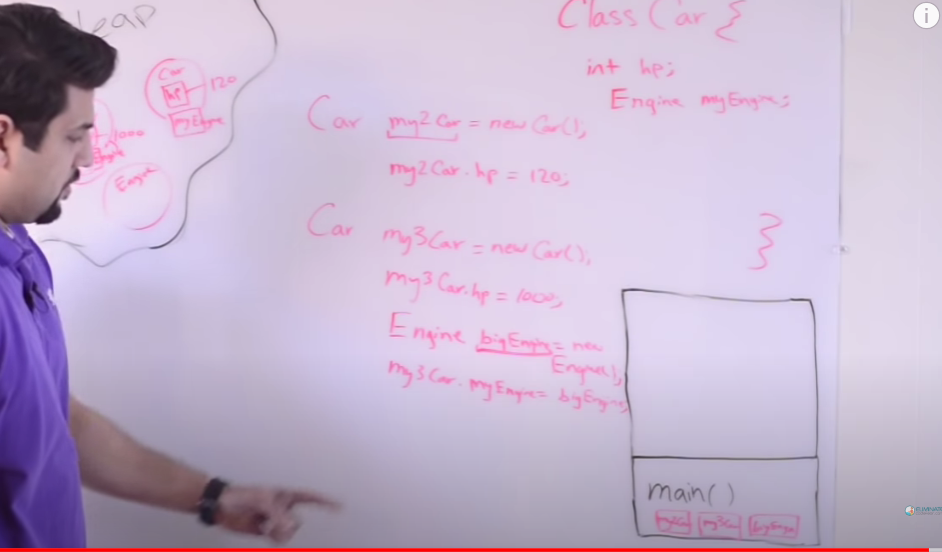 Heap
Class Car {
int hp;
Engine myEngine;
}
Car
hp
120
myEngine
1000
Engine
Car my2Car = new Car();
my2Car.hp = 120;
Car my3Car = new Car();
my3Car.hp = 1000;
Engine bigEngine = new
Engine();
my3Car.myEngine = bigEngine;
main()
my2Car my3Car bigEngine